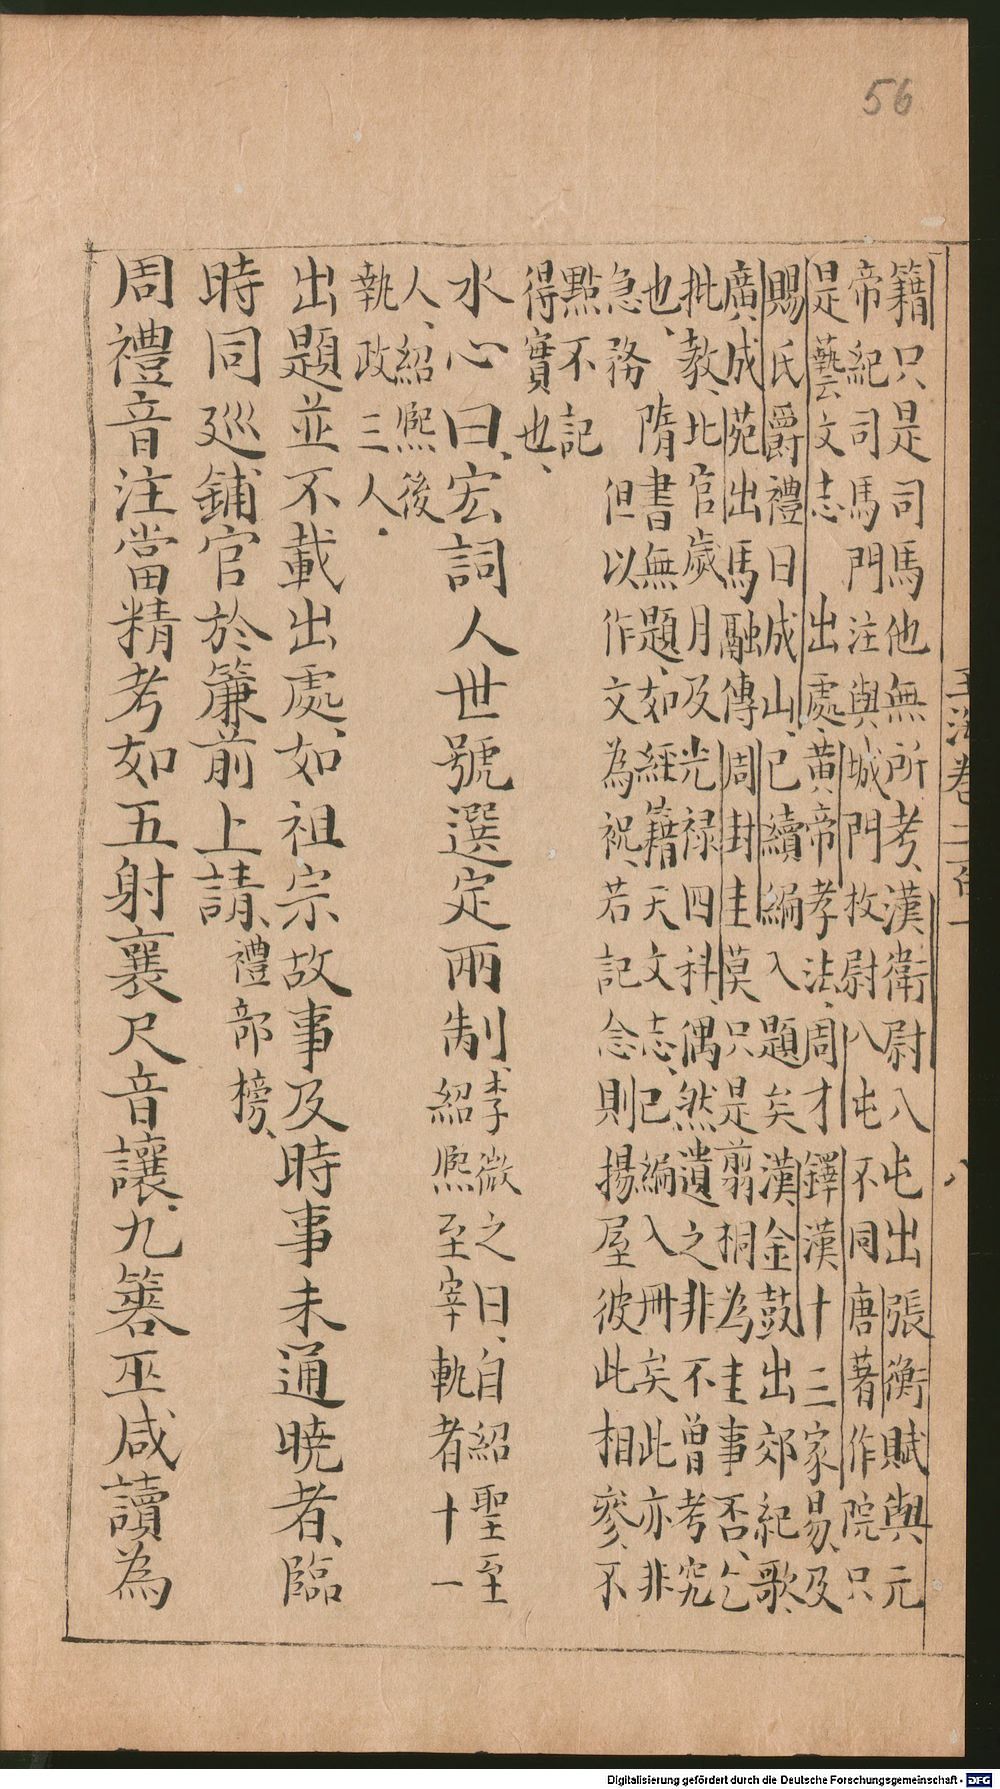 56
籍只是司馬他無所考、漢衛尉八屯出張衡賦與元
帝紀司馬門注與城門校尉八屯不同唐著作院只
是藝文志 出處、黃帝孝法、周才鐸漢十三家易、及
賜氏爵禮日成山、已續編入題矣漢金鼓出郊紀歌、
廣成苑出馬融傳周封圭莫只是剪桐為圭事否、乞
批教、北官歲月及光祿四科、偶然遺之非不曾考究
也、 隋書無題、如經籍天文志、已編入冊矣此亦非
急務 但以作文為祝、若記念則揚屋彼此相參、不
點不記
得實也、
水心曰、宏詞人世號選定兩制、李微之曰、自紹聖至
紹熙至宰執者十一
人、紹熙後
執政三人、
出題並不載出處、如祖宗故事及時事未通曉者、臨
時同巡鋪官於簾前上請、禮部榜、
周禮音注當精考如五射襄尺音讓、九簭巫咸讀為
玉海卷二百一
八
Digitalisierung gefördert durch die Deutsche Forschungsgemeinschaft - DFG